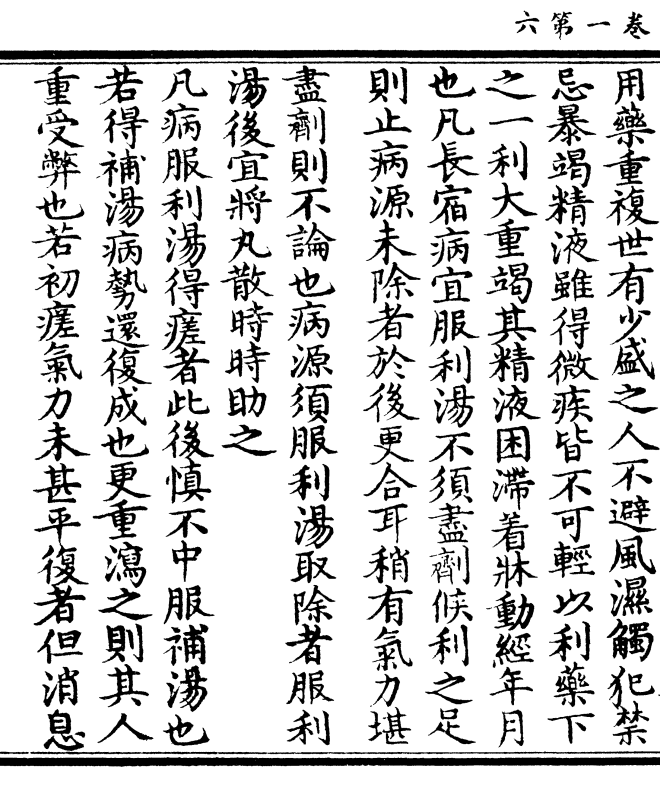 卷一第六
用藥重複世有少盛之人不避風濕觸犯禁
忌暴竭精液雖得微疾皆不可輕以利藥下
之一利大重竭其精液困滯着牀動經年月
也凡長宿病宜服利湯不須盡劑候利之足
則止病源未除者於後更合耳稍有氣力堪
盡劑則不論也病源須服利湯取除者服利
湯後宜將丸散時時助之
凡病服利湯得瘥者此後慎不中服補湯也
若得補湯病勢還復成也更重瀉之則其人
重受弊也若初瘥氣力未甚平復者但消息